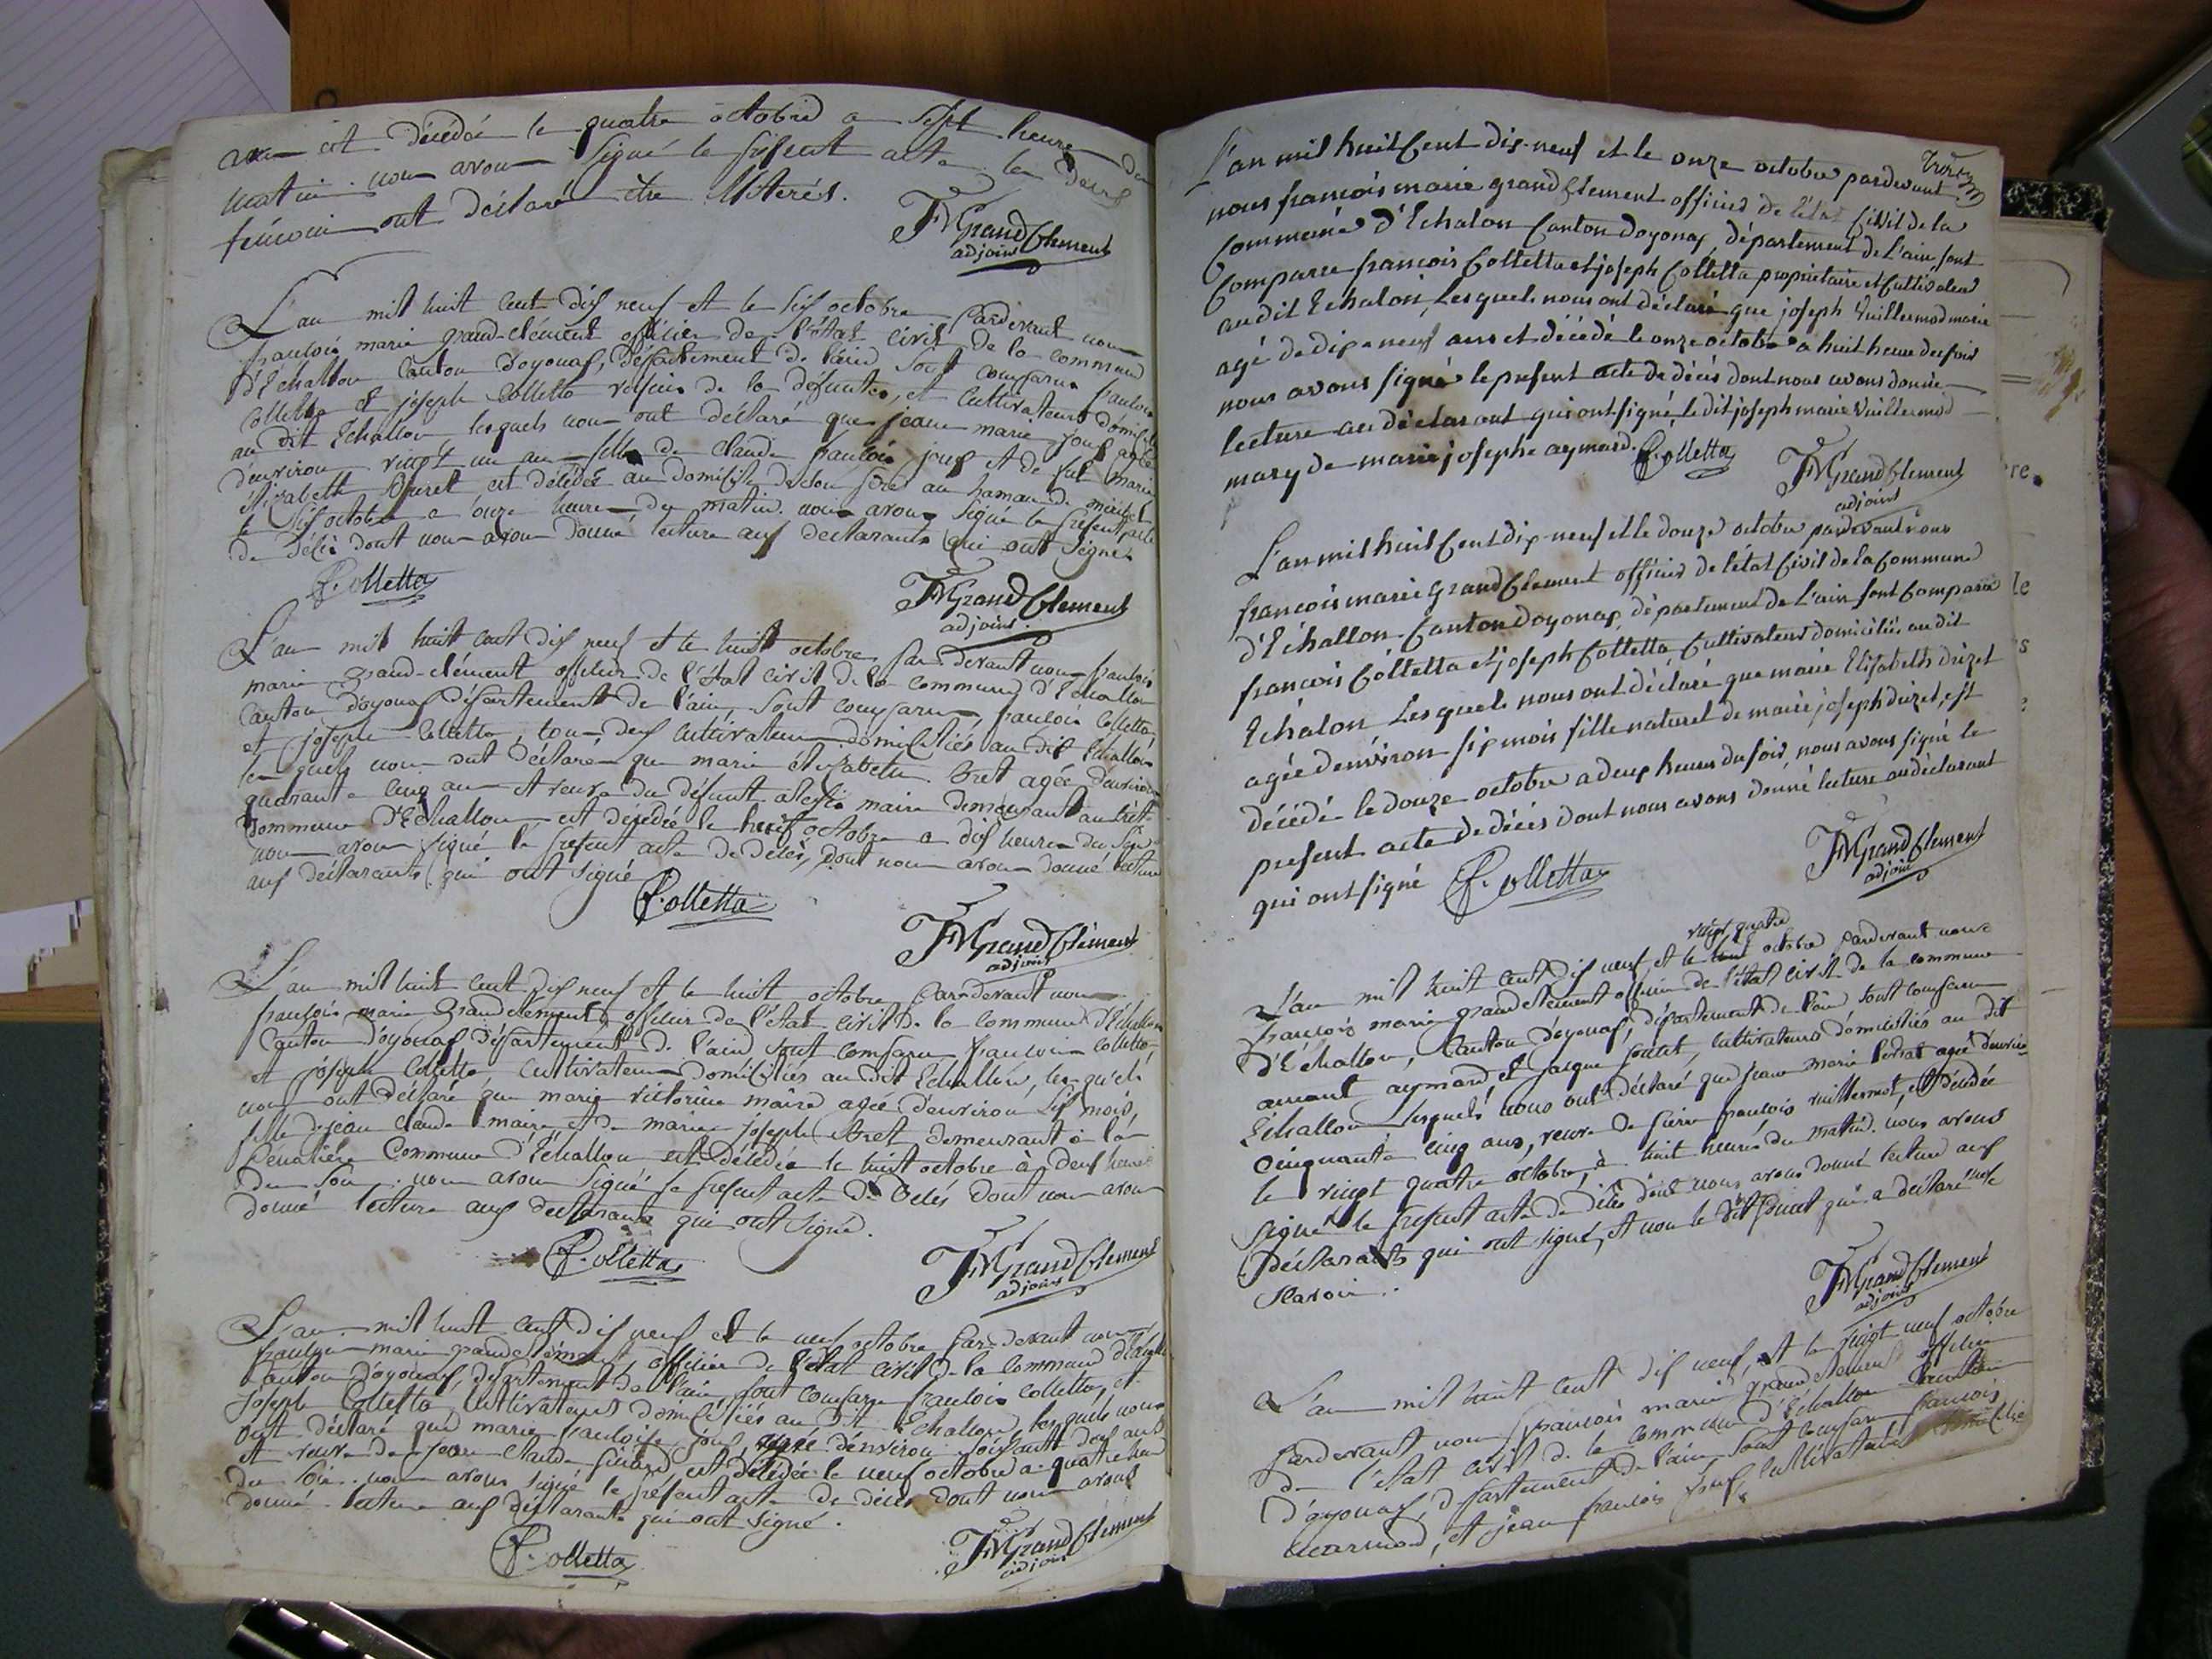 ans est décédée le quatre octobre a sept heures du
matin. nous avons signé le présent acte les deux
témoins ont déclaré être litérés.
FMGrandClement
adjoint
L'an mil huit cent dix neuf et le six octobre pardevant nous
françois marie grand-clément officier de l'état civil de la commune
d'Echallon canton d'oyonax, département de l'ain sont comparus françois
colletta et joseph colletta voisins de la défunte, et cultivateurs domiciliés
au dit Echallon lesquels nous ont déclaré que jeanne marie joux agée
d'environ vingt un ans fille de claude françois joux et de fut marie
élizabeth est décédée au domicile de son père au hameau de
le six octobre a onze heures du matin. nous avons signé le présent acte
de décès dont nous avons donné lecture aux declarants qui ont signé.
F. Colletta
FMGrandClement
adjoint.
L'an mil huit cent dix neuf et le huit octobre par devant nous françois
marie grand-clément officier de l'état civil de la commune d'Echallon
canton d'oyonax département de l'ain, sont comparus, françois colletta,
et joseph colletta, tous deux cultivateurs domiciliés au dit Echallon
lesquels nous ont déclaré que marie élizabeth agée d'environ
quarante cinq ans et veuve du défunt alexis maire demeurant au
commune d'Echallon est décédée le huit octobre a dix heures du
nous avons signé le présent acte de décès, dont nous avons donné lecture
aux déclarants qui ont signé
F. Colletta
FMGrandClement
adjoint
L'an mil huit cent dix neuf et le huit octobre pardevant nous
françois marie grandclément officier de l'état civil de la commune d'Echallon
canton d'oyonax département de l'ain sont comparu françois colletta
et joseph colletta cultivateurs domiciliés au dit Echallon, lesquels
nous ont déclaré que marie victorine maire agée d'environ six mois,
fille de jean claude maire et de marie joseph demeurant à la
commune d'Echallon est décédée le huit octobre à deux heures
du soir. nous avons signé le présent acte de décés dont nous avons
donné lecture aux declarants qui ont signé.
F. Colletta
FMGrandClement
adjoint
L'an mil huit cent dix neuf et le neuf octobre par-devant nous
françois marie grandclément officier de l'état civil de la commune d'Echallon
canton d'oyonax, département de l'ain, sont comparu françois colletta, et
joseph colletta, cultivateurs domiciliés au dit Echallon, lesquels nous
ont déclaré que marie françoise joux, agée d'environ soixante deux ans
et veuve de jean claude est décédée le neuf octobre a quatre heures
du soir. nous avons signé le présent acte de décès dont nous avons
donné lecture aux déclarants qui ont signé.
F. Colletta
FMGrandClement
adjoint
L'an mil huit Cent dix-neuf et le onze octobre pardevant
nous françois marie grand Clement officier de l'état Civil de la
Commune d'Echalon Canton doyonax, département de L'ain, sont
Comparu françois Colletta et joseph Colletta propriétaire et Cultivateur
au dit Echalon, Lesquels nous ont déclaré que joseph Vuillermod marie
agé de dix neuf ans et décédé le onze octobre a huit heure du soir
nous avons signé le present acte de décés dont nous avons donné
lecture au déclarant qui ont signé, le dit joseph marie Vuillermod
mary de marie josephe aymard. F. Colletta
FMGrandClement
adjoint
L'an mil huit Cent dix-neuf et le douze octobre pardevant nous
francois marie Grand Clement officier de l'état Civil de la Commune
d'Echallon Canton Doyonax, département de L'ain sont Comparu
françois Colletta et joseph Colletta Cultivateur domiciliés au dit
Echalon Lesquels nous ont déclaré que marie Elisabeth
agée denviron six mois fille naturel de marie joseph est
décédé le douze octobre a deux heures du soir, nous avons signé le
present acte de décés dont nous avons donné lecture au déclarant
qui ont signé F. Colletta
FMGrandClement
adjoint
vingt quatre
L'an mil huit cent dix neuf et le octobre pardevant nous
françois marie grandclement officier de l'état civil de la commune
d'Echallon, canton d'oyonax, département de l'ain sont comparu
amant aymard, et jacque cultivateurs domiciliés au dit
Echallon lesquels nous ont déclaré que jeane marie agée d'environ
cinquante cinq ans, veuve de pierre françois vuillermot, est décédée
le vingt quatre octobre, à huit heures du matin. nous avons
signé le présent acte de décès dont nous avons donné lecture aux
déclarants qui ont signé, et non le dit qui a déclaré ne le
savoir.
FMGrandClement
adjoint
L'an mil huit cent dix neuf, et le vingt neuf octobre
pardevant nous françois marie grandclement officier
de l'état civil de la commune d'Echallon canton
d'oyonax, département de l'ain, sont comparu françois
et jean françois joux, cultivateurs domiciliés